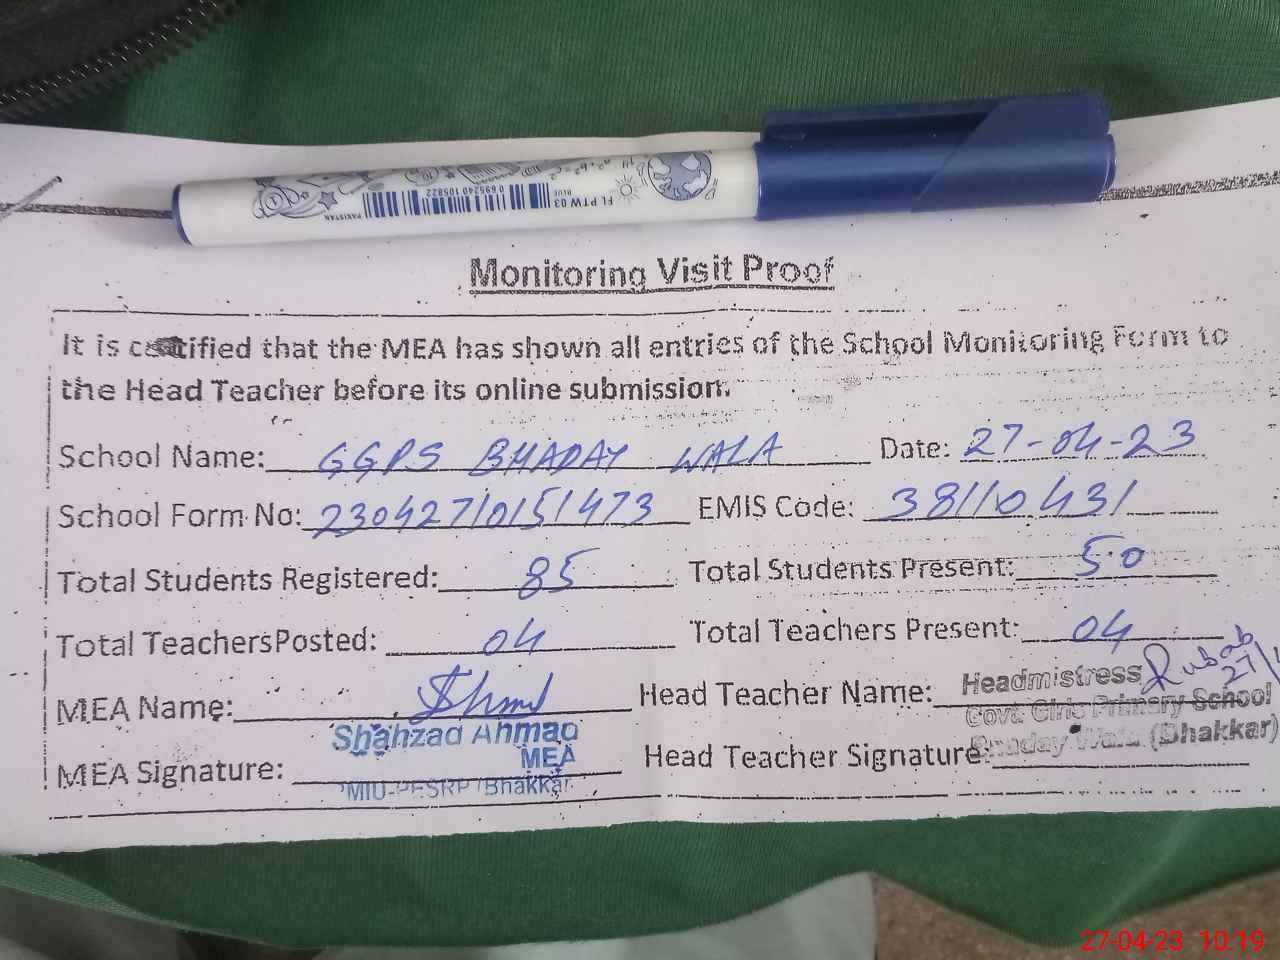 FLPTW 03
BLUE
0 695240 105822
PAKISTAN
Monitoring Visit Proof
It is certified that the MEA has shown all entries of the School Monitoring Form to
the Head Teacher before its online submission.
School Name: GGPS BHADAY WALA Date: 27-04-23
School Form No: 23042710151473 EMIS Code: 38110431
Total Students Registered: 85 Total Students Present: 50
Total TeachersPosted: 04 Total Teachers Present: 04
MEA Name: Head Teacher Name: Headmistress Rubab
27/
Govt. Girls Primary School
Shahzad Ahmad
Bhaday Wala (Bhakkar)
MEA
MEA Signature: Head Teacher Signature:
MIU-PESRP (Bhakkar)
27-04-23 10:19